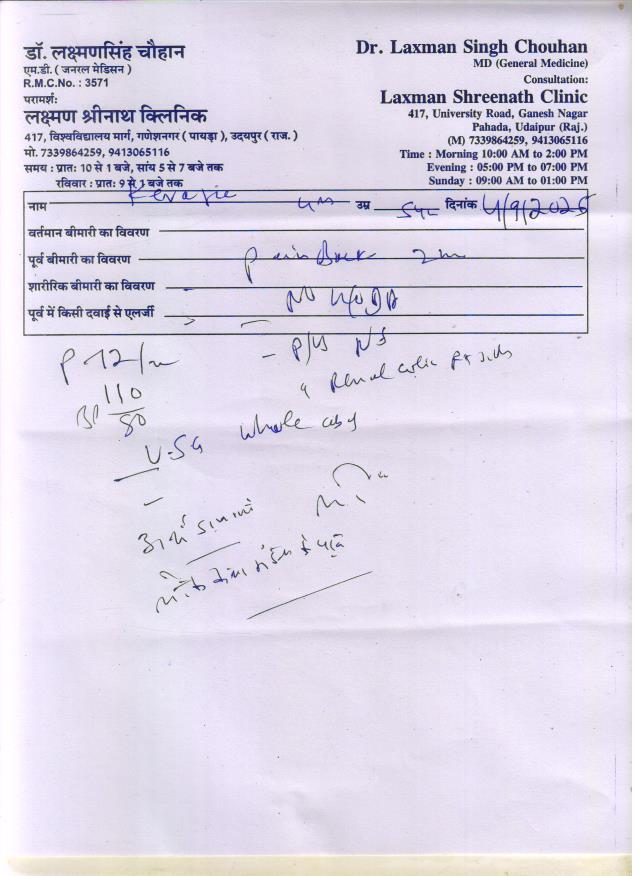 डॉ. लक्ष्मणसिंह चौहान
एम.डी. ( जनरल मेडिसन )
R.M.C.No. : 3571
परामर्श:
लक्ष्मण श्रीनाथ क्लिनिक
417, विश्वविद्यालय मार्ग, गणेशनगर ( पायड़ा ), उदयपुर ( राज. )
मो. 7339864259, 9413065116
समय : प्रात: 10 से 1 बजे, सांय 5 से 7 बजे तक
रविवार : प्रात: 9 से 1 बजे तक
Dr. Laxman Singh Chouhan
MD (General Medicine)
Consultation:
Laxman Shreenath Clinic
417, University Road, Ganesh Nagar
Pahada, Udaipur (Raj.)
(M) 7339864259, 9413065116
Time : Morning 10:00 AM to 2:00 PM
Evening : 05:00 PM to 07:00 PM
Sunday : 09:00 AM to 01:00 PM
नाम उम्र दिनांक 4/9/2025
वर्तमान बीमारी का विवरण
पूर्व बीमारी का विवरण Pain Back 2m
शारीरिक बीमारी का विवरण
पूर्व में किसी दवाई से एलर्जी
P 72/m
BP 110/80
Renal colic
USG whole abd